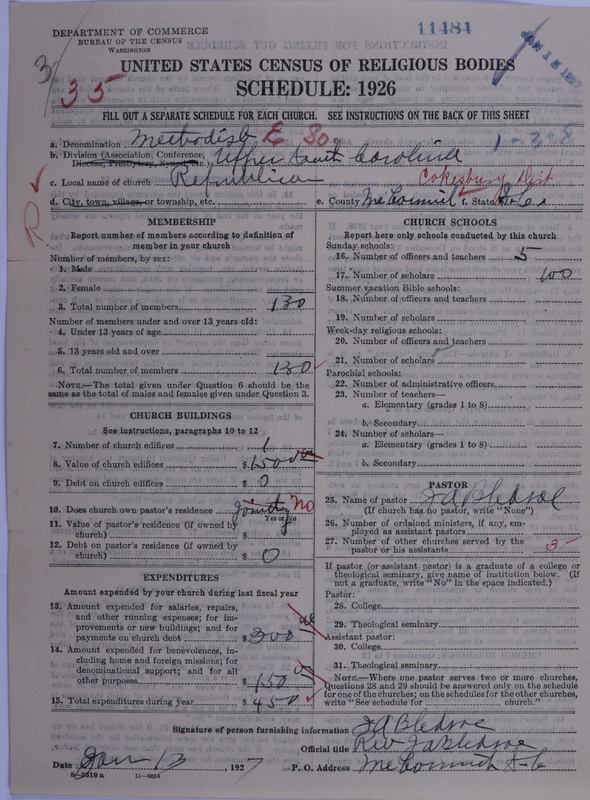 DEPARTMENT OF COMMERCE
BUREAU OF THE CENSUS
WASHINGTON
11484
JAN 15 1927
UNITED STATES CENSUS OF RELIGIOUS BODIES
35
SCHEDULE: 1926
FILL OUT A SEPARATE SCHEDULE FOR EACH CHURCH. SEE INSTRUCTIONS ON THE BACK OF THIS SHEET
a. Denomination Methodist E So. 1-3-8
b. Division (Association, Conference, Diocese, Presbytery, Synod, etc.) Upper South Carolina
c. Local name of church Republican Cokesbury Dist
d. City, town, village, or township, etc. e. County McCormick f. State S. C.
R
MEMBERSHIP
Report number of members according to definition of member in your church
Number of members, by sex:
1. Male
2. Female
3. Total number of members 130
Number of members under and over 13 years old:
4. Under 13 years of age
5. 13 years old and over
6. Total number of members 130
NOTE.—The total given under Question 6 should be the same as the total of males and females given under Question 3.
CHURCH BUILDINGS
See instructions, paragraphs 10 to 12
7. Number of church edifices 1
8. Value of church edifices $1500
9. Debt on church edifices $ 0
10. Does church own pastor's residence Jointly No
Yes or No
11. Value of pastor's residence (if owned by church) $
12. Debt on pastor's residence (if owned by church) $ 0
EXPENDITURES
Amount expended by your church during last fiscal year
13. Amount expended for salaries, repairs, and other running expenses; for improvements or new buildings; and for payments on church debt $300
14. Amount expended for benevolences, including home and foreign missions; for denominational support; and for all other purposes $150
15. Total expenditures during year $450
CHURCH SCHOOLS
Report here only schools conducted by this church
Sunday schools:
16. Number of officers and teachers 5
17. Number of scholars 100
Summer vacation Bible schools:
18. Number of officers and teachers
19. Number of scholars
Week-day religious schools:
20. Number of officers and teachers
21. Number of scholars
Parochial schools:
22. Number of administrative officers
23. Number of teachers—
a. Elementary (grades 1 to 8)
b. Secondary
24. Number of scholars—
a. Elementary (grades 1 to 8)
b. Secondary
PASTOR
25. Name of pastor J A Bledsoe
(If church has no pastor, write "None")
26. Number of ordained ministers, if any, employed as assistant pastors
27. Number of other churches served by the pastor or his assistants 3
If pastor (or assistant pastor) is a graduate of a college or theological seminary, give name of institution below. (If not a graduate, write "No" in the space indicated.)
Pastor:
28. College
29. Theological seminary
Assistant pastor:
30. College
31. Theological seminary
NOTE.—Where one pastor serves two or more churches, Questions 28 and 29 should be answered only on the schedule for one of the churches; on the schedules for the other churches, write "See schedule for church."
Signature of person furnishing information J A Bledsoe
Official title Rev J A Bledsoe
Date Jan 13, 1927 P. O. Address McCormick S-C
8-5518 a 11-9054